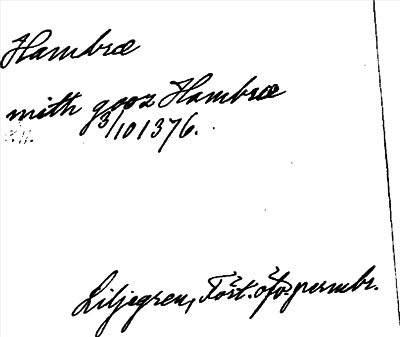 Hambræ
mith gooz Hambræ
3/10 1376.
Liljegren, Fört. öfv. permbr.